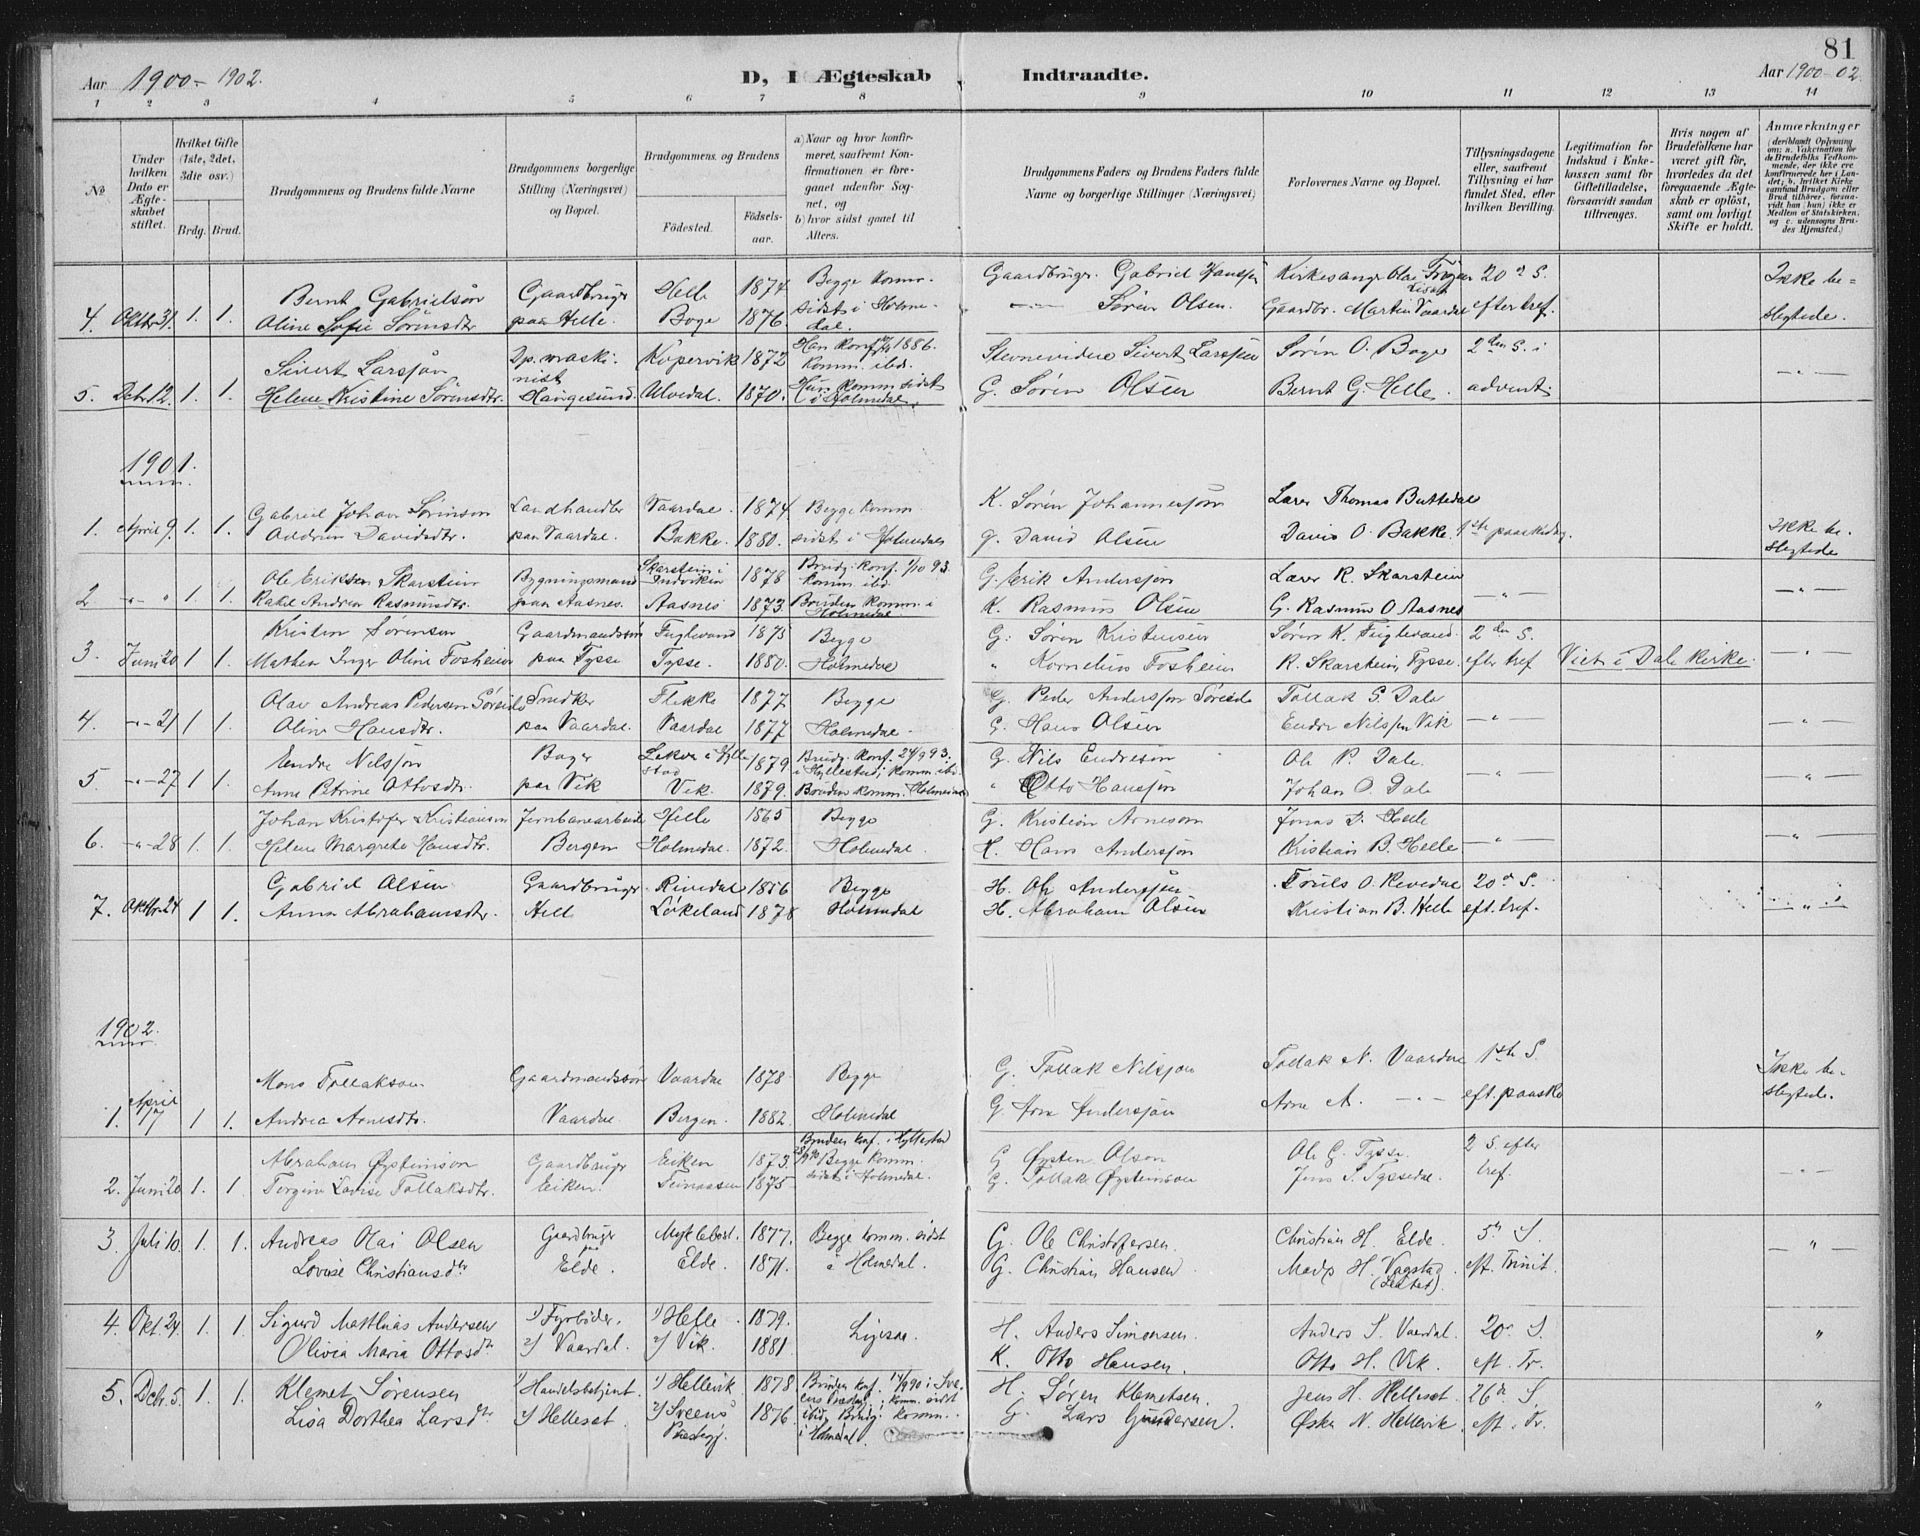 81
Aar 1900-1902.
D, I Ægteskab Indtraadte.
Aar 1900-02.
1 2 3 4 5 6 7 8 9 10 11 12 13 14
№
Under hvilken Dato er Ægteskabet stiftet.
Hvilket Gifte (1ste, 2det, 3die osv.)
Brdg. Brud.
Brudgommens og Brudens fulde Navne
Brudgommens borgerlige Stilling (Næringsvei) og Bopæl.
Brudgommens og Brudens
Fødested. Fødselsaar.
a) Naar og hvor konfirmeret, saafremt Konfirmationen er foregaaet udenfor Sognet, og
b) hvor sidst gaaet til Alters.
Brudgommens Faders og Brudens Faders fulde Navne og borgerlige Stillinger (Næringsvei).
Forlovernes Navne og Bopæl.
Tillysningsdagene eller, saafremt Tillysning ei har fundet Sted, efter hvilken Bevilling.
Legitimation for Indskud i Enkekassen samt for Giftetilladelse, forsaavidt saadan tiltrænges.
Hvis nogen af Brudefolkene har været gift før, hvorledes da det foregaaende Ægteskab er opløst, samt om lovligt Skifte er holdt.
Anmærkninger (deriblandt Oplysning om: a. Vakcination for de Brudefolks Vedkommende, der ikke ere konfirmerede her i Landet; b. hvilket Kirkesamfund Brudgom eller Brud tilhører, forsaavidt han (hun) ikke er Medlem af Statskirken, og c. udensogns Brudes Hjemsted.)
4. Oktbr 31. 1. 1. Bernt Gabrielsøn Gaardbruger Helle 1874 Begge komm. Gaardbruger Gabriel Hanssøn Kirkesanger Olai 20de S. Ikke be-
Aline Sofie Sørensdtr paa Helle. Boge 1876. sidst i Holmedal. —„— Søren Olsen. Gaardbr. Martin Vaardal efter tref. slegtede.
5. Dcb. 12. 1. 1. Sivert Larssøn Dp. maskinist Kopervik 1872 Han konf. 1886. Komm. ibd. Stevnevidne Sivert Larssøn Søren O. Boge 2den S. i —„—
Helene Kristine Sørensdtr. Haugesund. Ulvedal. 1870. Hun komm. sidst i Holmedal. G. Søren Olsen Bernt G. Helle. advent.
1901.
1. April 9. 1. 1. Gabriel Johan Sørensøn Landhandler Vaardal. 1874 Begge komm. K. Søren Johannessøn Lærer Thomas Buttedal
Davidsdtr. paa Vaardal. Bakke. 1880. sidst i Holmedal G. David Olsen David O. Bakke. 1ste paaskedag. Ikke beslegtede
2 „ „ 1. 1. Ole Eriksen Skarstein Bygningsmand Skarstein i Indviken 1878 Brudg. konf. 1/10 93. komm. ibd. G. Erik Anderssøn Lærer R. Skarstein —„—
Rakel Andrea Rasmusdtr. paa Aasnes. Aasnes 1873. Bruden komm. i Holmedal K. Rasmus Olsen G. Rasmus O Aasnes —„—
3. Juni 20 1 1. Kristen Sørensen Gaardmandssøn Fuglevand 1875 Begge G. Søren Kristensen Søren K. Fuglevand. 2den S.
Mathea Inger Oline Fosheim paa Tysse Tysse. 1880. Holmedal „ Kornelius Fosheim R. Skarstein, Tysse. efter tref Viet i Dale Kirke. —„—
4. -„- 21 1 1. Olav Andreas Pedersen Sørside Snedker Flekke 1877 Begge G. Peder Anderssøn Sørside Tollak S. Dale
Oline Hansdtr. paa Vaardal. Vaardal 1877 Holmedal. G. Hans Olsen Endre Nilssøn Vik —„— —„—
5. -„- 27 1 1. Endre Nilssøn Bager i Hyllestad 1879 Brudg. konf. 24/9 93. i Hyllestad; komm. ibd. G. Nils Endresøn Ole P. Dale.
Anne Petrine Ottosdtr. paa Vik Vik 1879. Bruden komm. Holmedal „ Otto Hanssøn Johan O. Dale —„— —„—
6. -„- 28 1. 1. Johan Kristofer Kristiansen Jernbanearbeider Helle 1865 Begge G. Kristian Arnesøn Jonas J. Helle
Helene Margrete Hansdtr. Bergen Holmedal. 1872. Holmedal. K. Hans Anderssøn Kristian B. Helle —„— —„—
7. Oktbr. 24 1 1. Gabriel Olsen Gaardbruger Rivedal 1856 Begge H. Ole Anderssøn Rivedal 20de S.
Anna Abrahamsdtr. Helle Løkeland 1878 Holmedal H. Abraham Olsen Kristian B. Helle eft. tref. —„—
1902.
1. April 17 1 1. Mons Tollaksøn Gaardmandssøn Vaardal 1878 Begge G. Tollak Nilssøn Tollak N. Vaardal 1ste S. Ikke be-
Andrea Arnesdtr. Vaardal Bergen. 1882. Holmedal G. Arne Anderssøn Arne A. —„— eft. paaske slegtede.
2. Juni 20 1. 1. Abraham Øysteinsøn Gaardbruger Eiken 1873. Bruden konf. i Hyllestad Begge komm. sidst i Holmedal. G Øysten Olsøn Ole G. Tysse. 2 S. efter
Lovise Tollaksdtr. Eiken. 1875 G. Tollak Øysteinsøn Jens S. Tyssedal. tref. —„—
3. Juli 10. 1. 1. Andreas Olai Olsen Gaardbruger Myklebost. 1877. Begge komm. sidst G. Ole Christofersen. Christian H. Elde. 5te S.
Lovise Christiansdtr paa Elde. Elde. 1871. i Holmedal. G. Christian Hansen. Mads H. Vagstad eft. Trinit. —„—
4. Okt. 24. 1. 1. Sigurd Matthias Andersen 1) Fyrbøder. 1) Helle. 1879. H. Anders Simonsen. Anders S. Vaardal. 20de S.
Olivia Maria Ottosdtr 2) Vaardal. 2) Vik. 1881. Ligesaa K. Otto Hansen. Otto H. Vik. eft. Tr. „
5. Dcbr. 5. 1. 1. Klemet Sørensen 1) Handelsbetjent. 1) Hellevik 1878 Bruden konf. 14/9 90 i Sveens Prestegj; komm. sidst ibd; H. Søren Klemetsen. Jens H. Helleset. 26de S.
Lisa Dorthea Larsdtr 2) Helleset. 2) Sveens Prestegj. 1876. Brudg. komm. i Holmedal. G. Lars Gundersen. N. Hellevik. eft. Tr. „